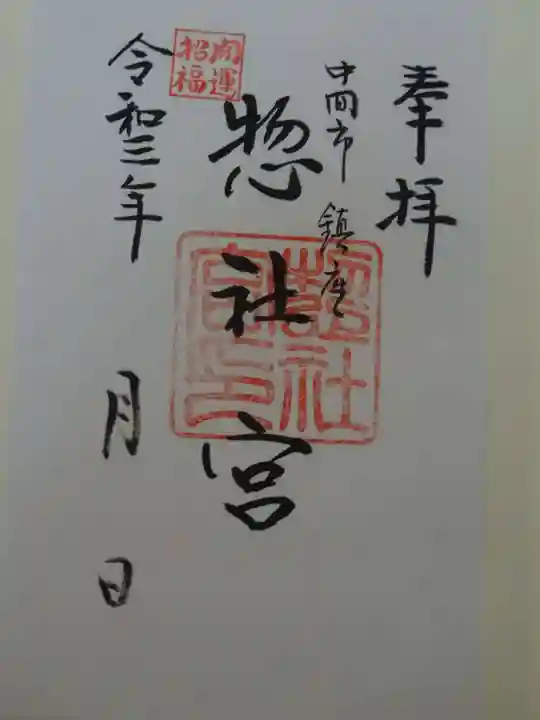 奉拝
中间市 鎮座
惣社宮
惣社
宮印
開運
招福
令和三年 月 日